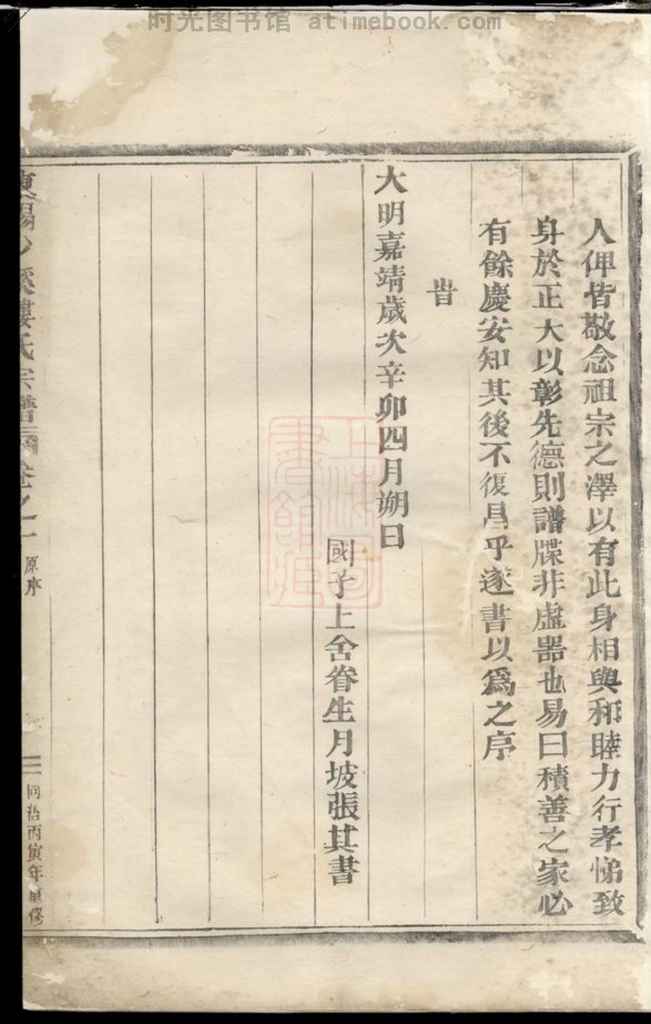 时光图书馆 atimebook.com
人俾皆敬念祖宗之澤以有此身相與和睦力行孝悌致
身於正大以彰先德則譜牒非虛器也易曰積善之家必
有餘慶安知其後不復昌乎遂書以爲之序
旹
大明嘉靖歲次辛卯四月朔日
國子上舍眷生月坡張其書
東陽沙溪樓氏宗譜 卷之一 原序
三 同治丙寅年重修
上海圖書館藏